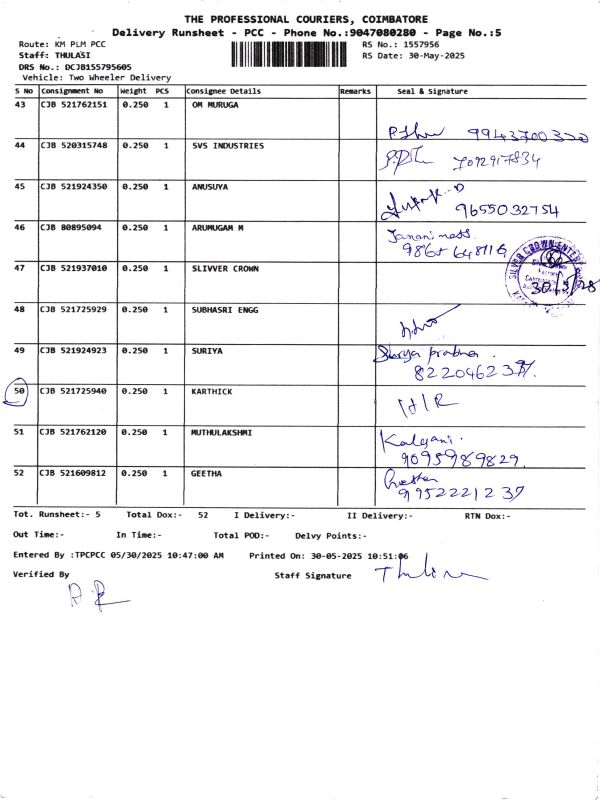 THE PROFESSIONAL COURIERS, COIMBATORE
Delivery Runsheet - PCC - Phone No.:9047080280 - Page No.:5
Route: KM PLM PCC RS No.: 1557956
Staff: THULASI RS Date: 30-May-2025
DRS No.: DCJB155795605
Vehicle: Two Wheeler Delivery
S No Consignment No Weight PCS Consignee Details Remarks Seal & Signature
43 CJB 521762151 0.250 1 OM MURUGA
9943700320
44 CJB 520315748 0.250 1 SVS INDUSTRIES
7092917834
45 CJB 521924350 0.250 1 ANUSUYA
9655032754
46 CJB 80895094 0.250 1 ARUMUGAM M
Janani mess
9865648116
47 CJB 521937010 0.250 1 SLIVVER CROWN
SILVER CROWN ENTER
48 CJB 521725929 0.250 1 SUBHASRI ENGG
49 CJB 521924923 0.250 1 SURIYA Surya prabha.
50 CJB 521725940 0.250 1 KARTHICK
51 CJB 521762120 0.250 1 MUTHULAKSHMI Kalyani.
9095989829.
52 CJB 521609812 0.250 1 GEETHA
9952221237
Tot. Runsheet:- 5 Total Dox:- 52 I Delivery:- II Delivery:- RTN Dox:-
Out Time:- In Time:- Total POD:- Delvy Points:-
Entered By :TPCPCC 05/30/2025 10:47:00 AM Printed On: 30-05-2025 10:51:06
Verified By Staff Signature